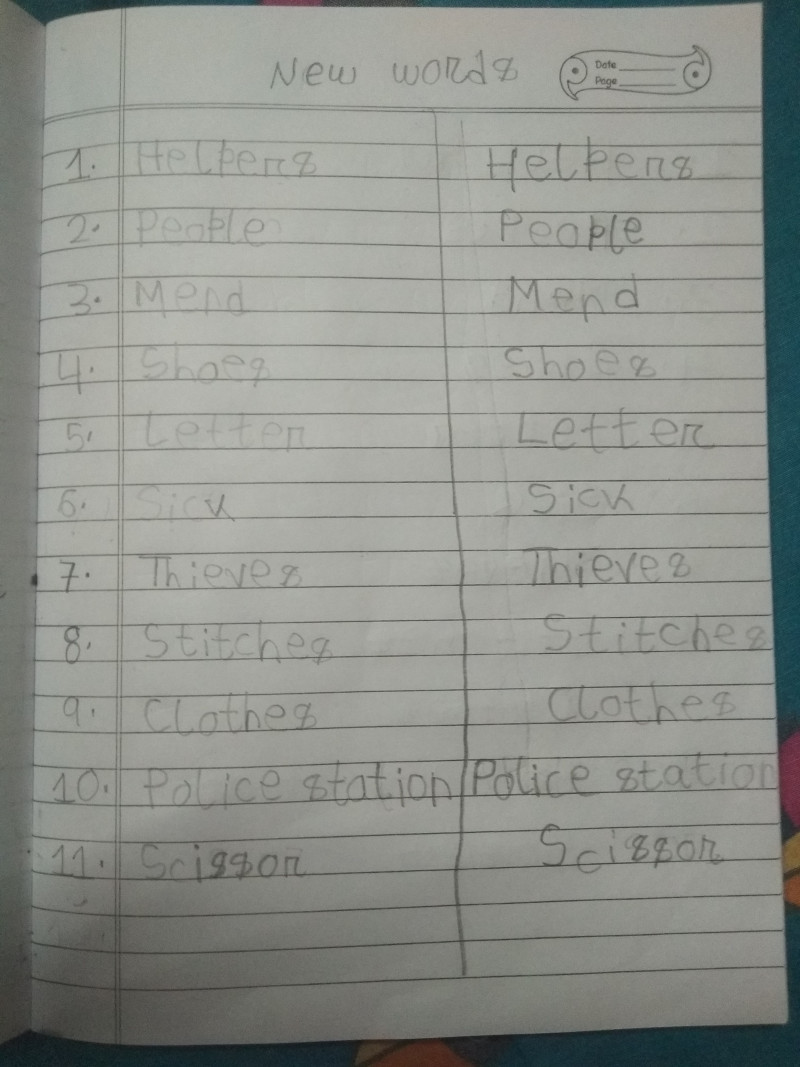 New words
Date
Page
1. Helpers Helpers
2. People People
3. Mend Mend
4. Shoes Shoes
5. Letter Letter
6. Sick Sick
7. Thieves Thieves
8. Stitches Stitches
9. Clothes Clothes
10. Police station Police station
11. Scissor Scissor